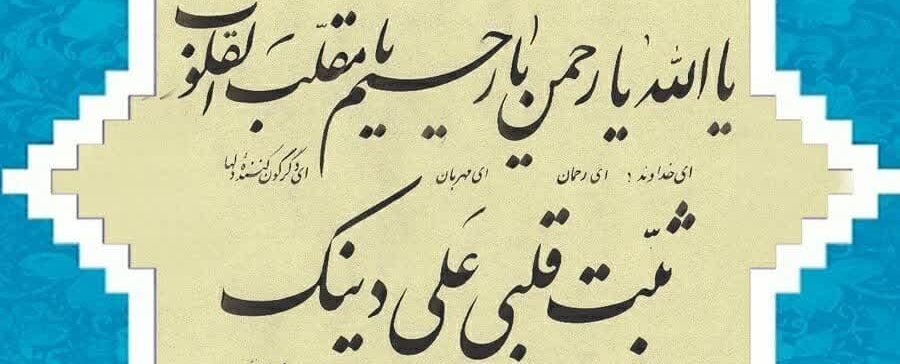 یا الله یا رحمن یا رحیم یا مقلّبَ القلوب
ای خداوند ؛ ای رحمان ای مهربان ای دگرگون کنندهٔ دلها
ثبّت قلبی عَلی دینک